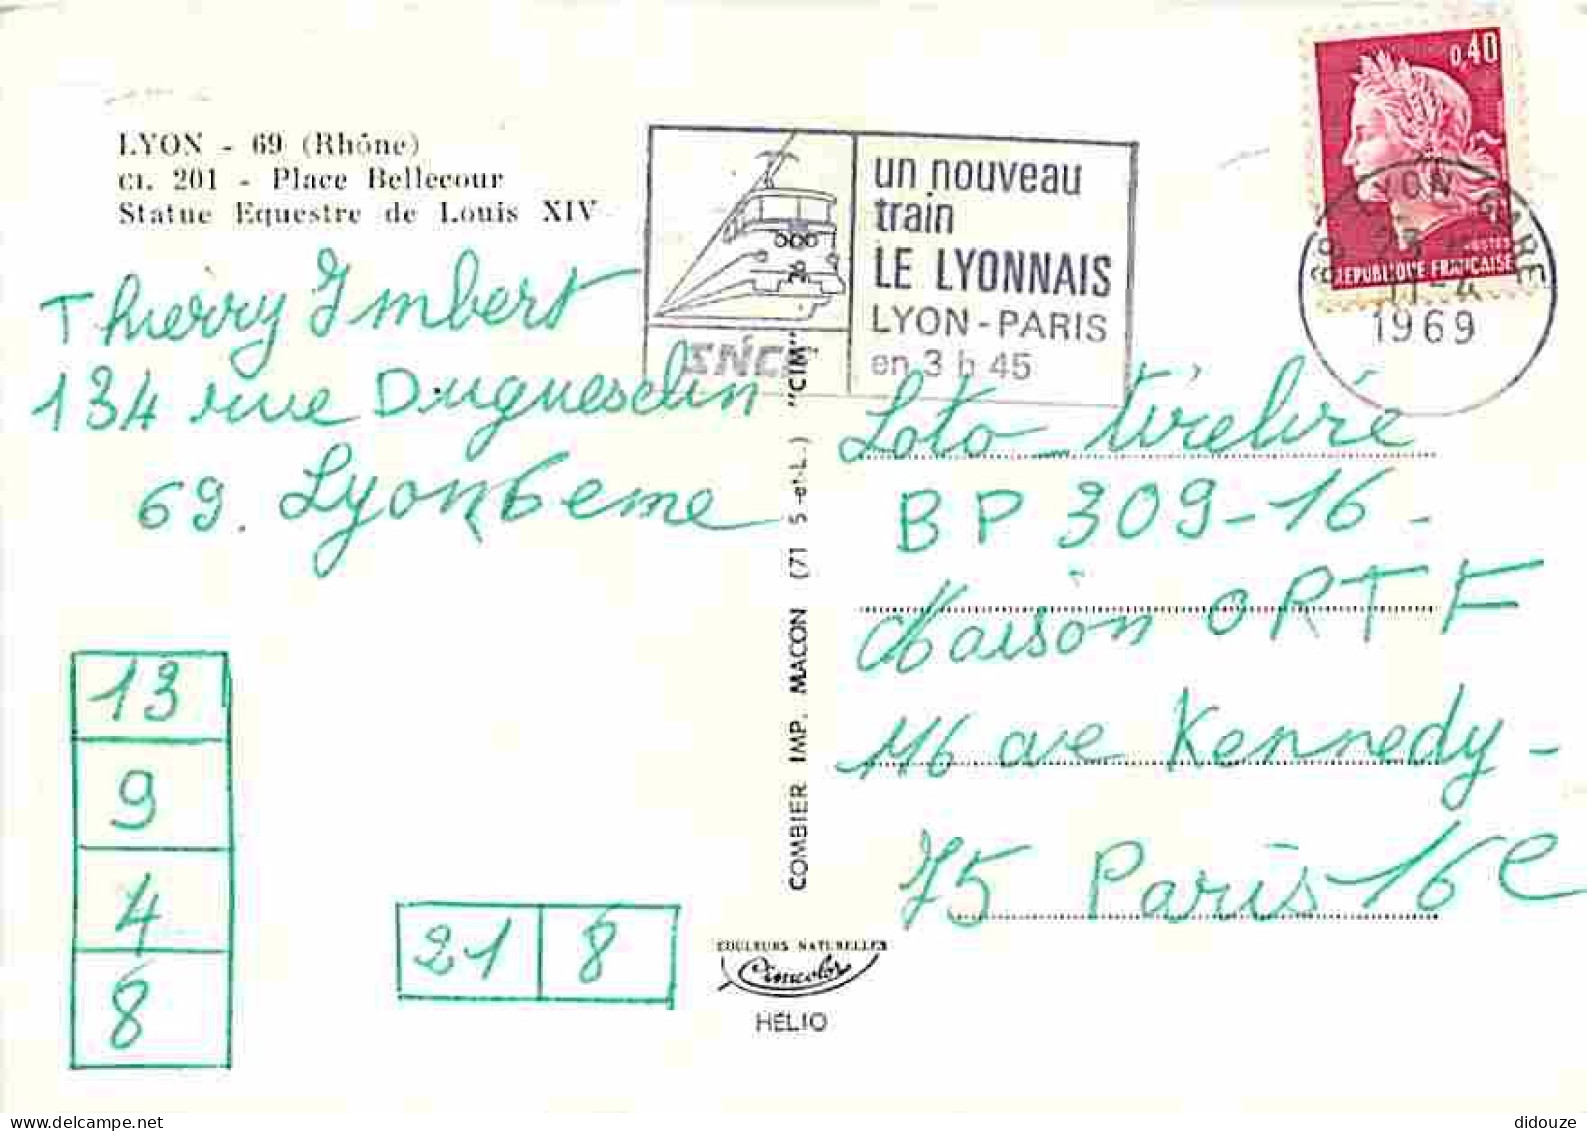 LYON - 69 (Rhône)
CI. 201 - Place Bellecour
Statue Equestre de Louis XIV
un nouveau
train
LE LYONNAIS
LYON-PARIS
en 3 h 45
SNCF
0,40
POSTES
REPUBLIQUE FRANCAISE
LYON GARE
11-4
1969
Thierry Imbert
134 rue Duguesclin
69. Lyon 6eme
13
9
4
8
21 8
COMBIER IMP. MACON (71 S-et-L.) "CIM"
COULEURS NATURELLES
Cimcolor
HELIO
Loto-tirelire
BP 309-16-
Maison ORTF
116 ave Kennedy-
75 Paris-16e
didouze